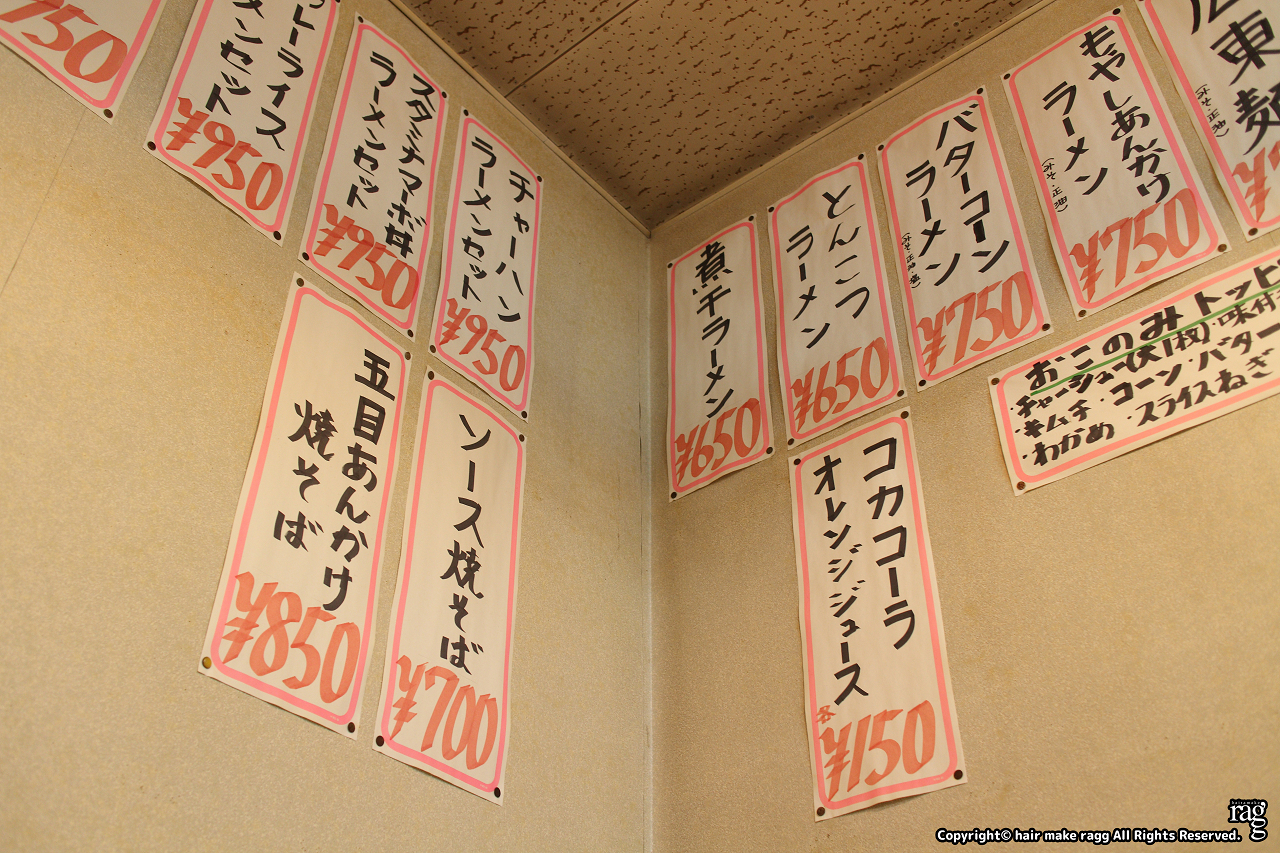 750
レーライス
メンセット
¥950
スタミナマーボ丼
ラーメンセット
¥950
チャーハン
ラーメンセット
¥950
五目あんかけ
焼そば
¥850
ソース焼そば
¥700
煮干ラーメン
¥650
とんこつ
ラーメン
¥650
バターコーン
ラーメン
(みそ・正油・塩)
¥750
もやしあんかけ
ラーメン
(みそ・正油)
¥750
広東麺
(みそ・正油)
コカコーラ
オレンジジュース
各
¥150
おこのみトッピ
・チャーシュー(大1枚)・味付
・キムチ・コーン・バター
・わかめ・スライスねぎ
hair & make
rag
Copyright© hair make ragg All Rights Reserved.